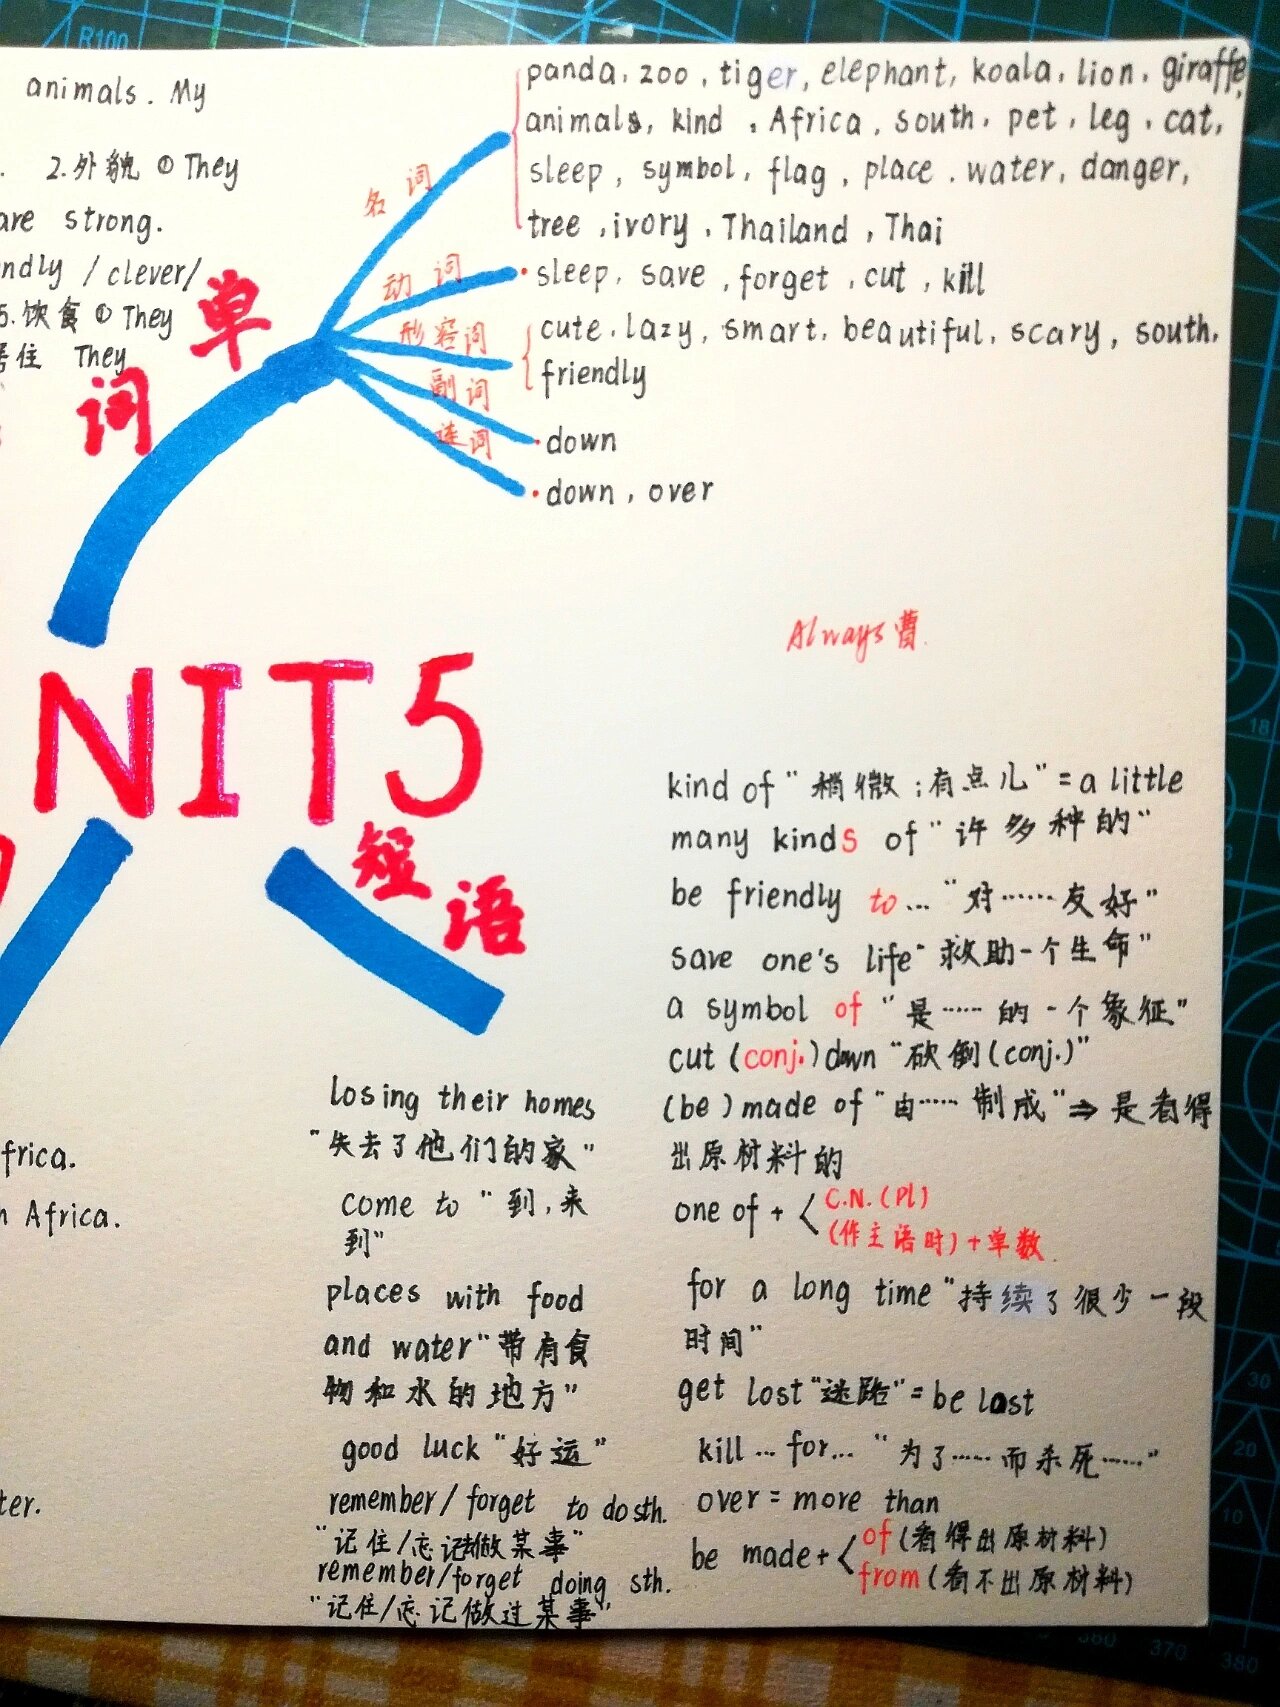 R100
animals. My
2.外貌 ① They
are strong.
ndly / clever/
5.饮食 ① They
居住 They
单
词
名词
panda, zoo, tiger, elephant, koala, lion, giraffe,
animals, kind, Africa, south, pet, leg, cat,
sleep, symbol, flag, place. water, danger,
tree, ivory, Thailand, Thai
动词
sleep, save, forget, cut, kill
形容词
cute, lazy, smart, beautiful, scary, south,
friendly
副词
down
连词
down, over
Always 曹
NIT5
短
语
frica.
n Africa.
ter.
losing their homes
"失去了他们的家"
come to "到,来
到"
places with food
and water"带有食
物和水的地方"
good luck "好运"
remember/ forget to do sth.
"记住/忘记做某事"
remember/forget doing sth.
"记住/忘记做过某事"
kind of "稍微;有点儿"=a little
many kinds of "许多种的"
be friendly to... "对……友好"
save one's life"救助一个生命"
a symbol of "是……的一个象征"
cut (conj.)down "砍倒(conj.)"
(be)made of "由……制成"⇒是看得
出原材料的
one of + < C.N.(Pl)
(作主语时)+单数
for a long time "持续了很少一段
时间"
get lost"迷路"=be lost
kill ... for... "为了……而杀死……"
over = more than
be made+ < of (看得出原材料)
from (看不出原材料)
18
30
20
10
360 370 380